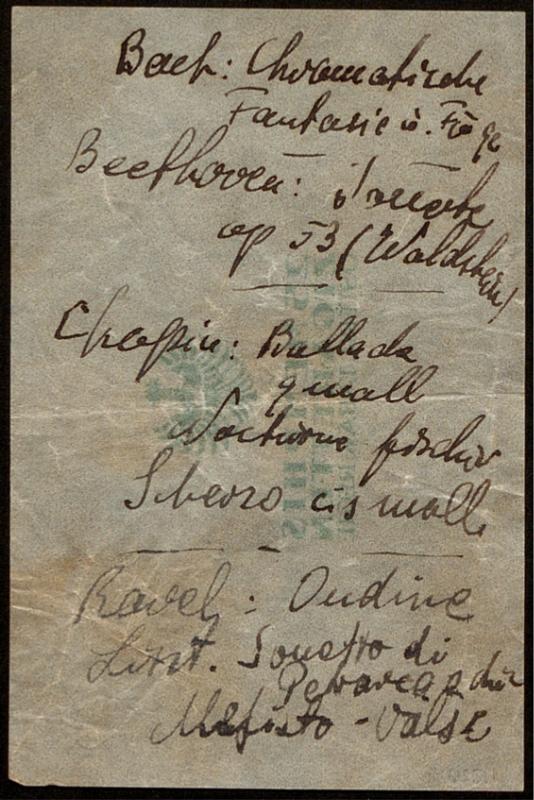 Bach: Chromatische
Fantasie u. Fuge
Beethoven: Sonate
op 53 (Waldstein)
Chopin: Ballada
g moll
Nocturne fis dur
Scherzo cis moll
Ravel: Ondine
Liszt. Sonetto di
Petrarca
Mefisto-Valse